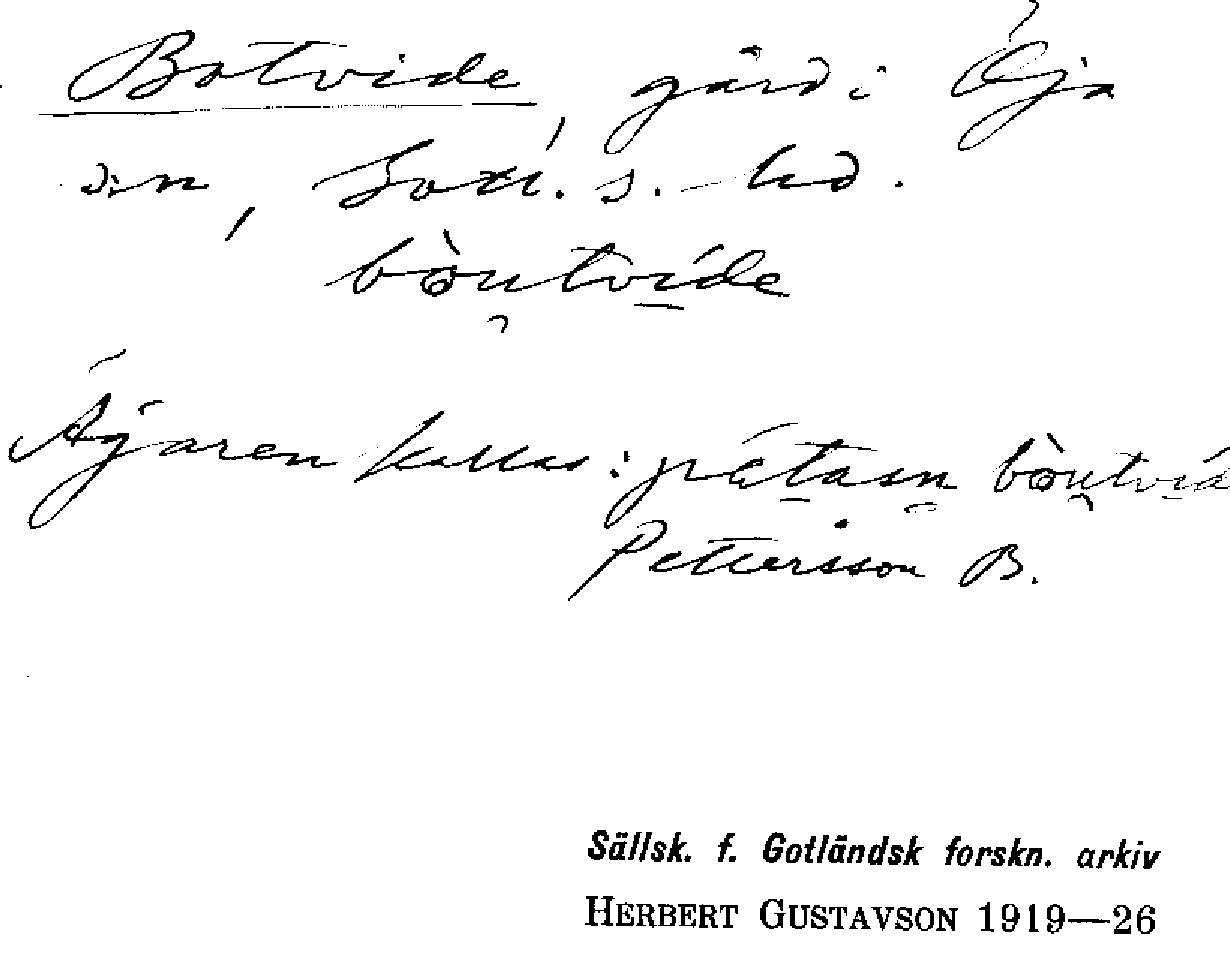 Botvide, gård i Öja
sn, Gotl. s. hd.
bòu̯tvíde
Ägaren kallas: pétasn bòu̯tvíd
Pettersson B.
Sällsk. f. Gotländsk forskn. arkiv
HERBERT GUSTAVSON 1919—26